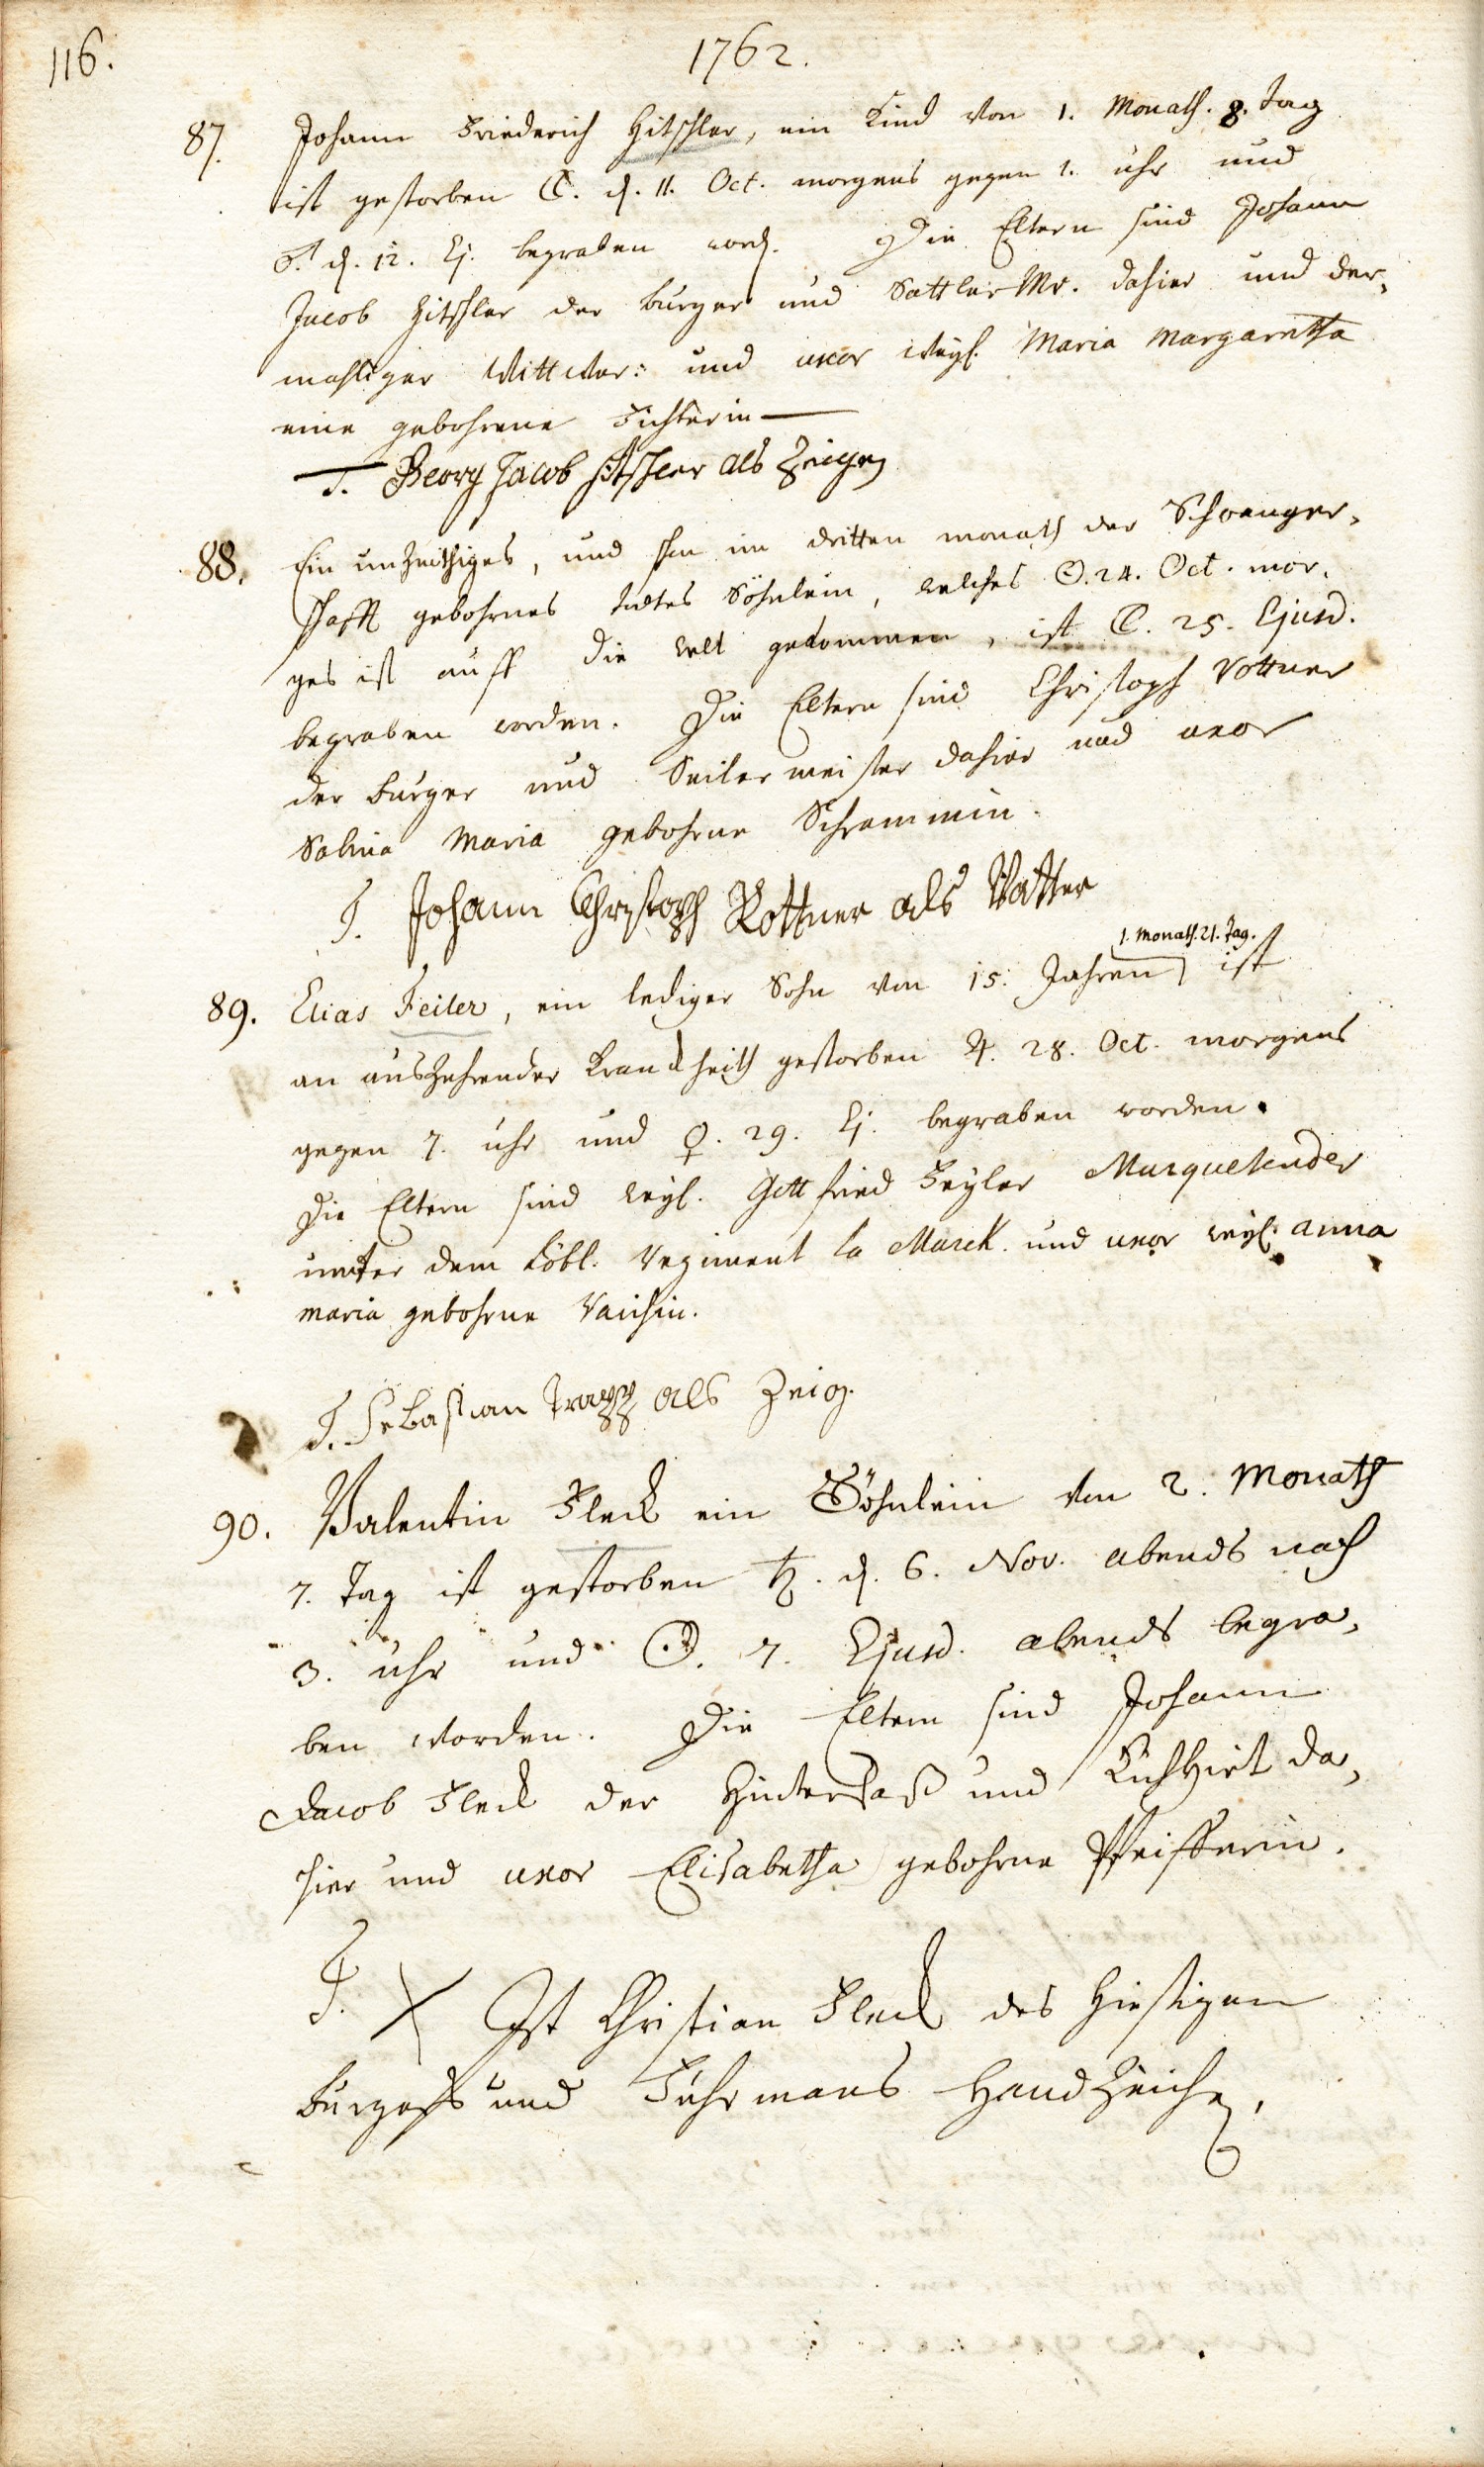 116.
1762.
87. Johann Friederich Hitschler, ein Kind von 1. Monath. 8. Tag
ist gestorben ☾. d. 11. Oct. morgens gegen 1. uhr und
♂. d. 12. Ej. begraben word. Die Eltern sind Johann
Jacob Hitschler der burger und Sattler Mr. dahier und der-
mahliger Wittwer: und uxor weyl. Maria Margaretha
eine gebohrene Fichterin
T. Georg Jacob Hitschler als Zeugen
88. Ein unzeithiges, und schon im dritten monath der Schwanger-
schafft gebohrnes todtes Söhnlein, welches ☉. 24. Oct. mor-
gens ist auff die welt gekommen, ist ☾. 25. Ejusd.
begraben worden. Die Eltern sind Christoph Rottner
der burger und Seilermeister dahier und uxor
Salina Maria gebohrne Schrammin.
T. Johann Christoph Rottner als Vatter
1. Monath. 21. Tag.
89. Elias Feiler, ein lediger Sohn von 15. Jahren ist
an auszehrender Krankheith gestorben ♃. 28. Oct. morgens
gegen 7. uhr und ♀. 29. Ej. begraben worden.
Die Eltern sind weyl. Gottfried Feyler Marquetender
unter dem Löbl. Regiment la Marck. und uxor weyl. anna
maria gebohrne
T. Sebastian Trapp als Zeig.
90. Valentin Fleck ein Söhnlein von 2. Monath
7. Tag ist gestorben ♄. d. 6. Nov. abends nach
3. uhr und ☉. 7. Ejusd. abends begra-
ben worden. Die Eltern sind Johann
Jacob Fleck der Hintersaß und Kuhhirt da-
hier und uxor Elisabetha gebohrne Pfeifferin.
T. X Ist Christian Fleck des hiesigen
burgers und Fuhrmans Handzeichen.